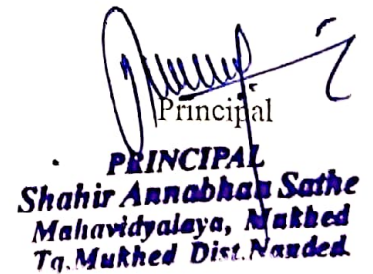 Principal
PRINCIPAL
Shahir Annabhau Sathe
Mahavidyalaya, Mukhed
Tq. Mukhed Dist. Nanded.